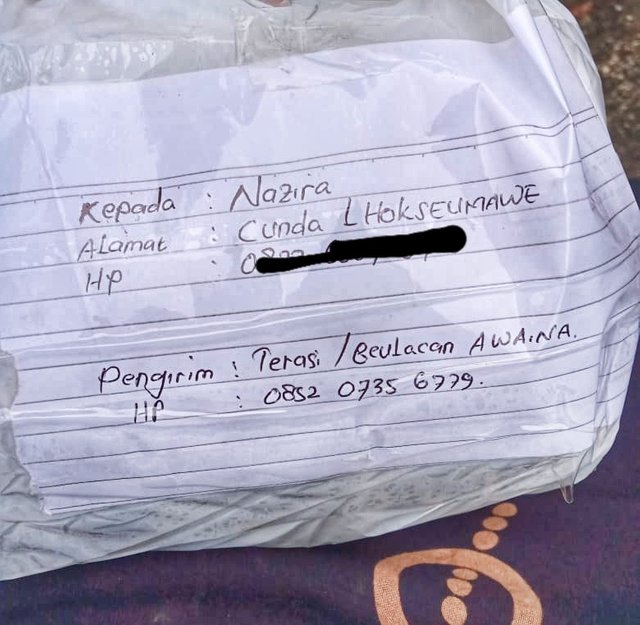 Kepada : Nazira
Alamat : Cunda LHOKSEUMAWE
HP :
Pengirim : Terasi / Beulacan AWAINA.
HP : 0852 0735 6779.